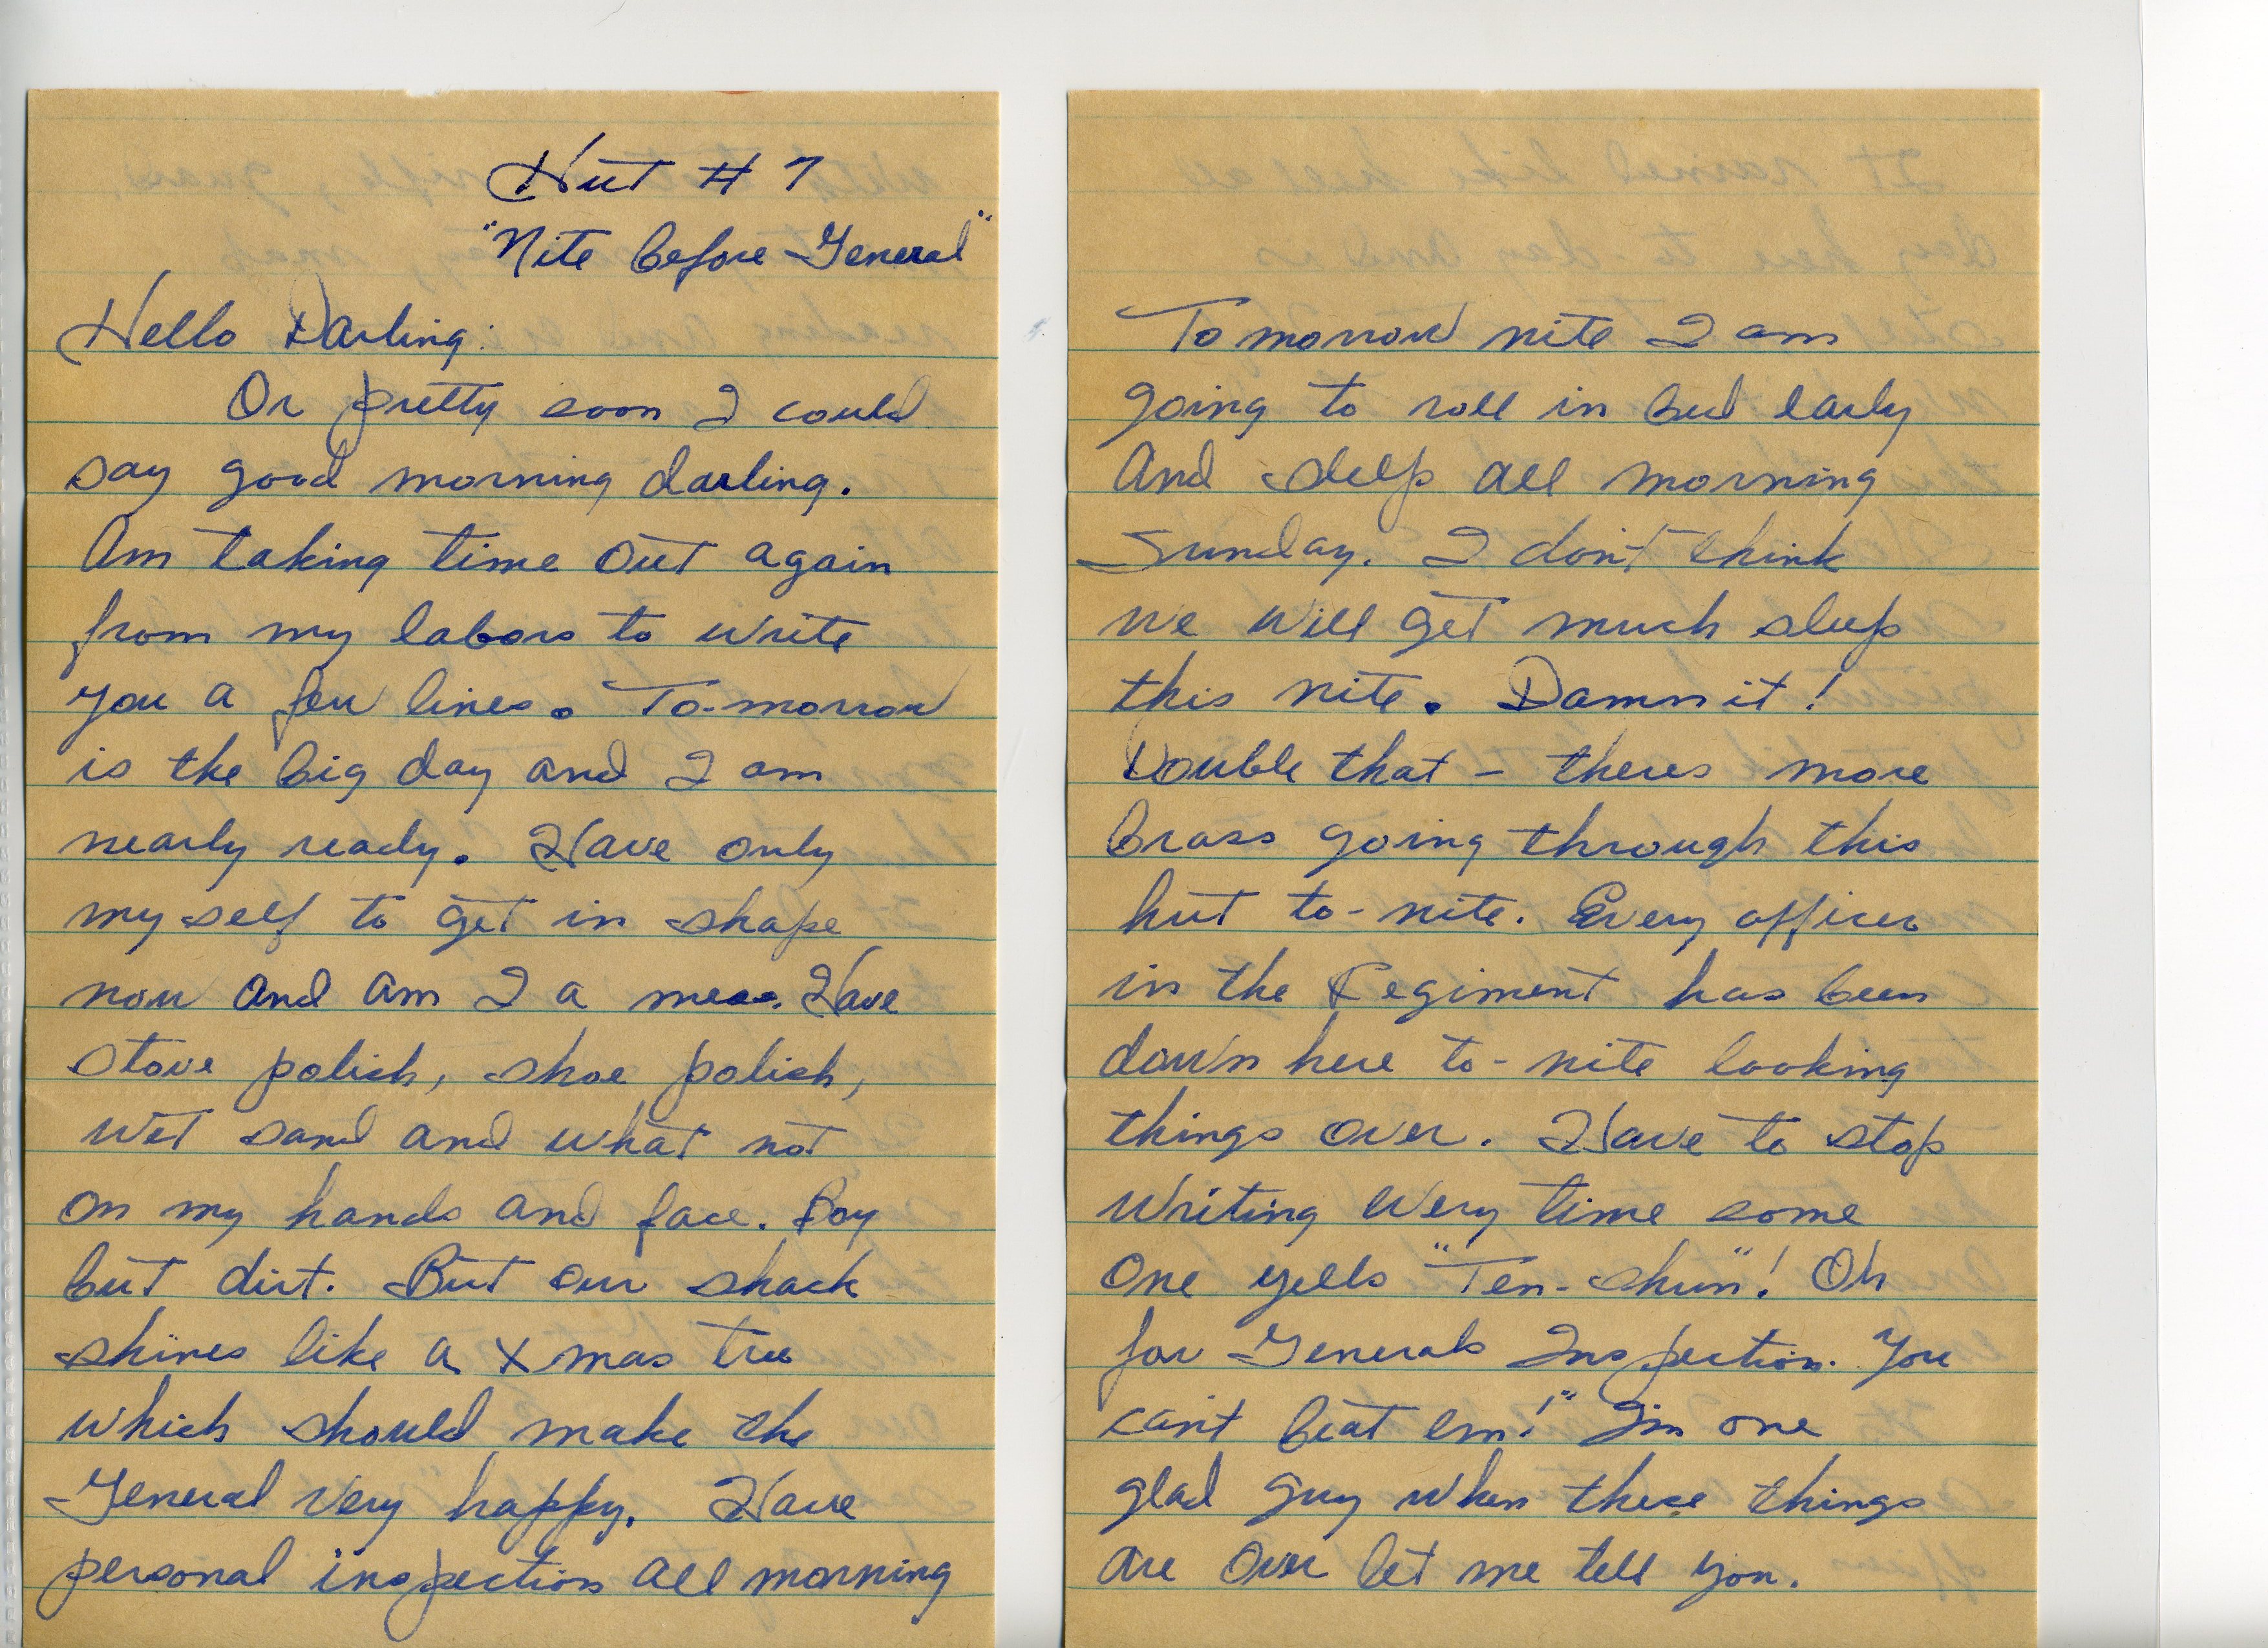 Hut # 7
"Nite before General"
Hello Darling:
Or pretty soon I could
say good morning darling.
Am taking time out again
from my labors to write
you a few lines. To-morrow
is the big day and I am
nearly ready. Have only
my self to get in shape
now and am I a mess. Have
stove polish, shoe polish,
wet sand and what not
on my hands and face. Boy
but dirt. But our shack
shines like a Xmas tree
which should make the
General very happy. Have
personal inspection all morning
Tomorrow nite I am
going to roll in bed early
And sleep all morning
Sunday. I don't think
we will get much sleep
this nite. Damn it!
Double that - theres more
brass going through this
hut to-nite. Every officer
in the Regiment has been
down here to-nite looking
things over. Have to stop
writing every time some
one yells "Ten-shun"! Oh
for Generals Inspection. You
can't beat em!" I'm one
glad guy when these things
are over let me tell you.